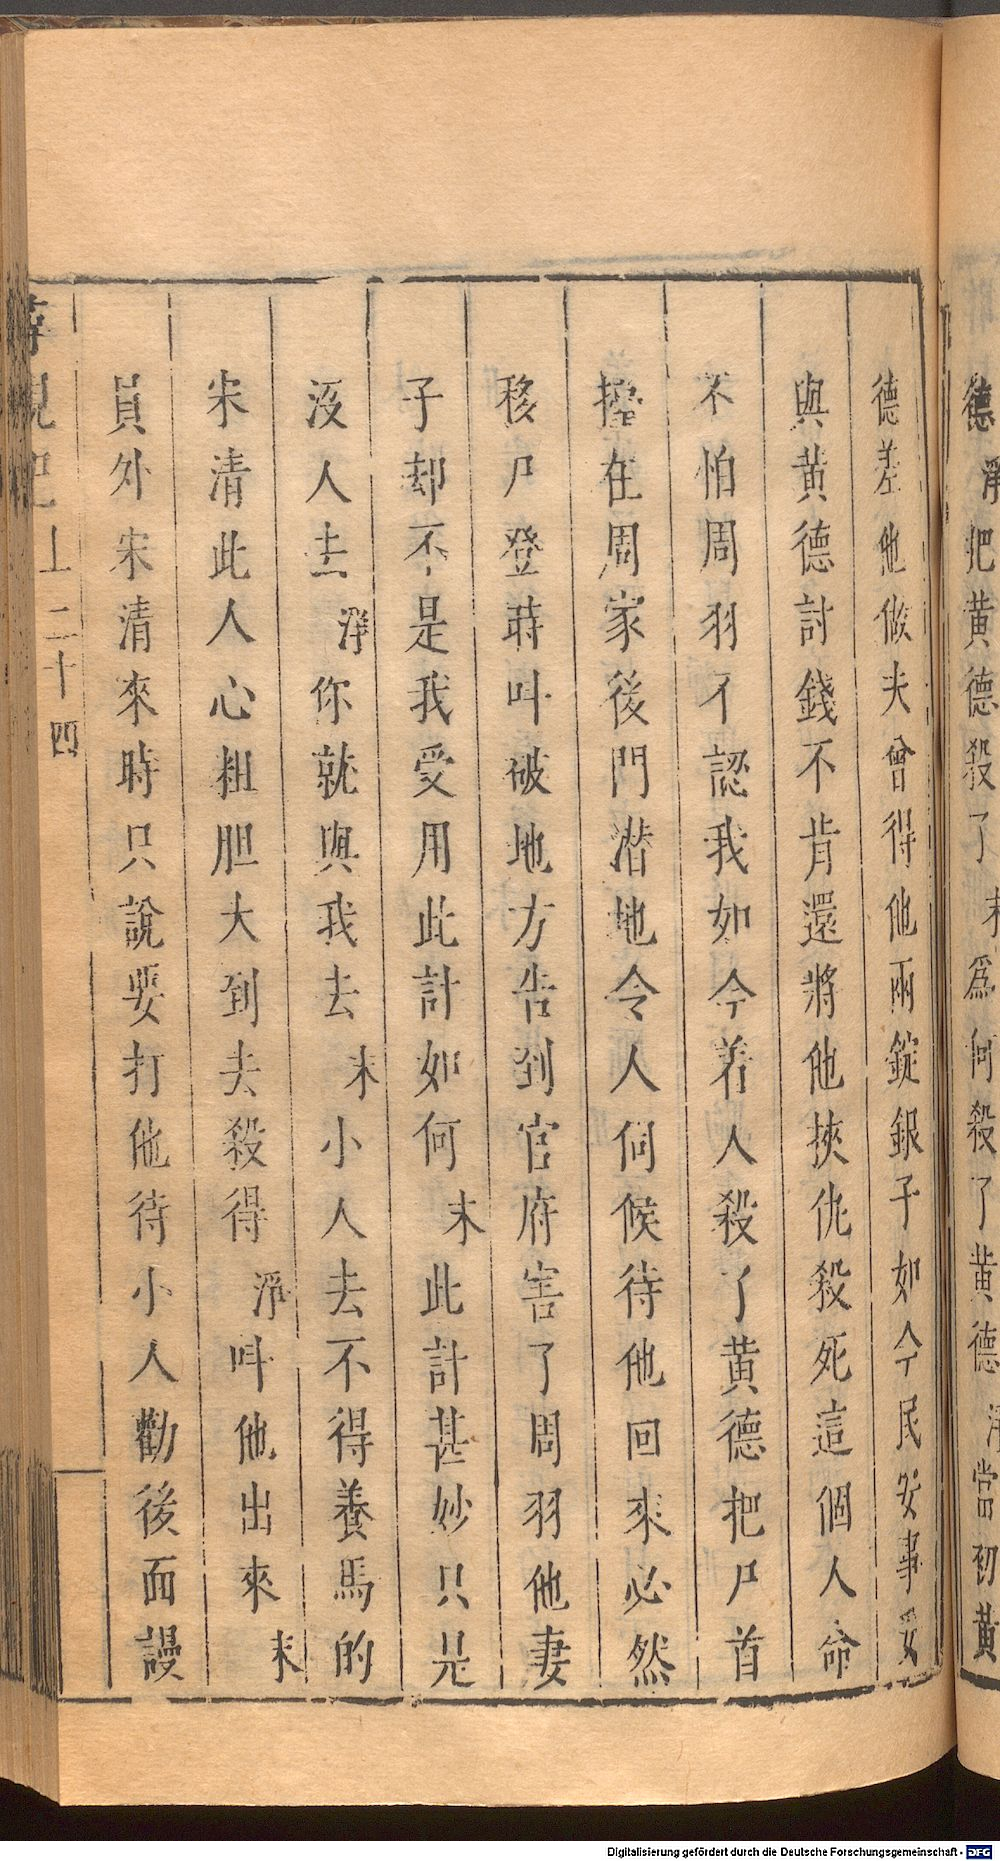 德 淨 把黃德殺了 末 爲何殺了黃德 淨 當初黃
德差他做夫曾得他兩錠銀子如今民安事妥
與黃德討錢不肯還將他挾仇殺死這個人命
不怕周羽不認我如今若人殺了黃德把尸首
在周家後門潜地令人伺候待他回來必然
移尸登時叫破地方告到官府害了周羽他妻
子却不是我受用此計如何 末 此計甚妙只是
沒人去 淨 你就與我去 末 小人去不得養馬的
宋清此人心粗胆大到去殺得 淨 叫他出來 末
員外宋清來時只說要打他待小人勸後面謾
尋親記上 二十四
Digitalisierung gefördert durch die Deutsche Forschungsgemeinschaft - DFG